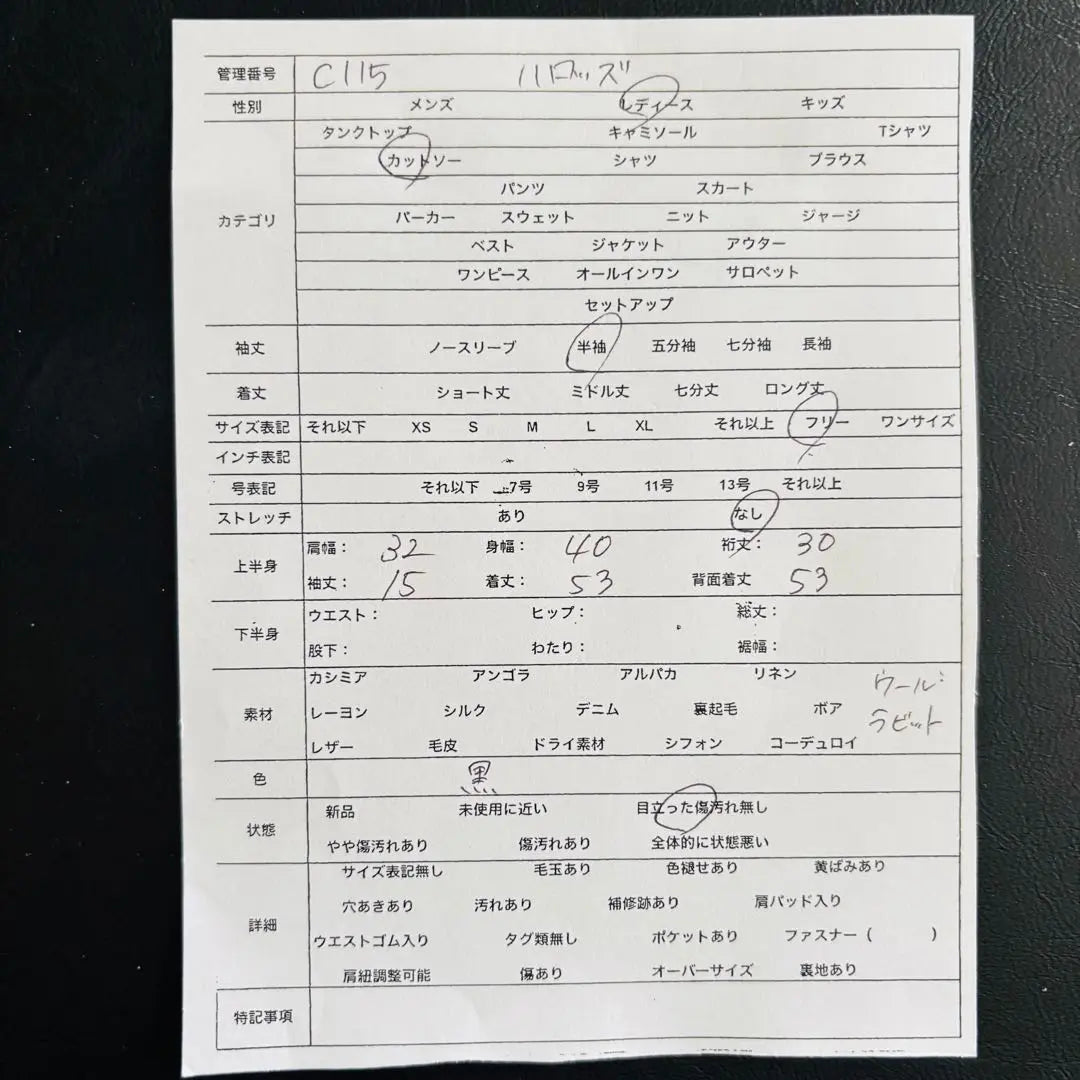 管理番号 C115 ハロッズ
性別 メンズ レディース キッズ
タンクトップ キャミソール Tシャツ
カットソー シャツ ブラウス
パンツ スカート
カテゴリ パーカー スウェット ニット ジャージ
ベスト ジャケット アウター
ワンピース オールインワン サロペット
セットアップ
袖丈 ノースリーブ 半袖 五分袖 七分袖 長袖
着丈 ショート丈 ミドル丈 七分丈 ロング丈
サイズ表記 それ以下 XS S M L XL それ以上 フリー ワンサイズ
インチ表記
号表記 それ以下 7号 9号 11号 13号 それ以上
ストレッチ あり なし
上半身 肩幅: 32 身幅: 40 裄丈: 30
袖丈: 15 着丈: 53 背面着丈 53
下半身 ウエスト: ヒップ: 総丈:
股下: わたり: 裾幅:
素材 カシミア アンゴラ アルパカ リネン ウール
レーヨン シルク デニム 裏起毛 ボア ラビット
レザー 毛皮 ドライ素材 シフォン コーデュロイ
色 黒
状態 新品 未使用に近い 目立った傷汚れ無し
やや傷汚れあり 傷汚れあり 全体的に状態悪い
詳細 サイズ表記無し 毛玉あり 色褪せあり 黄ばみあり
穴あきあり 汚れあり 補修跡あり 肩パッド入り
ウエストゴム入り タグ類無し ポケットあり ファスナー( )
肩紐調整可能 傷あり オーバーサイズ 裏地あり
特記事項